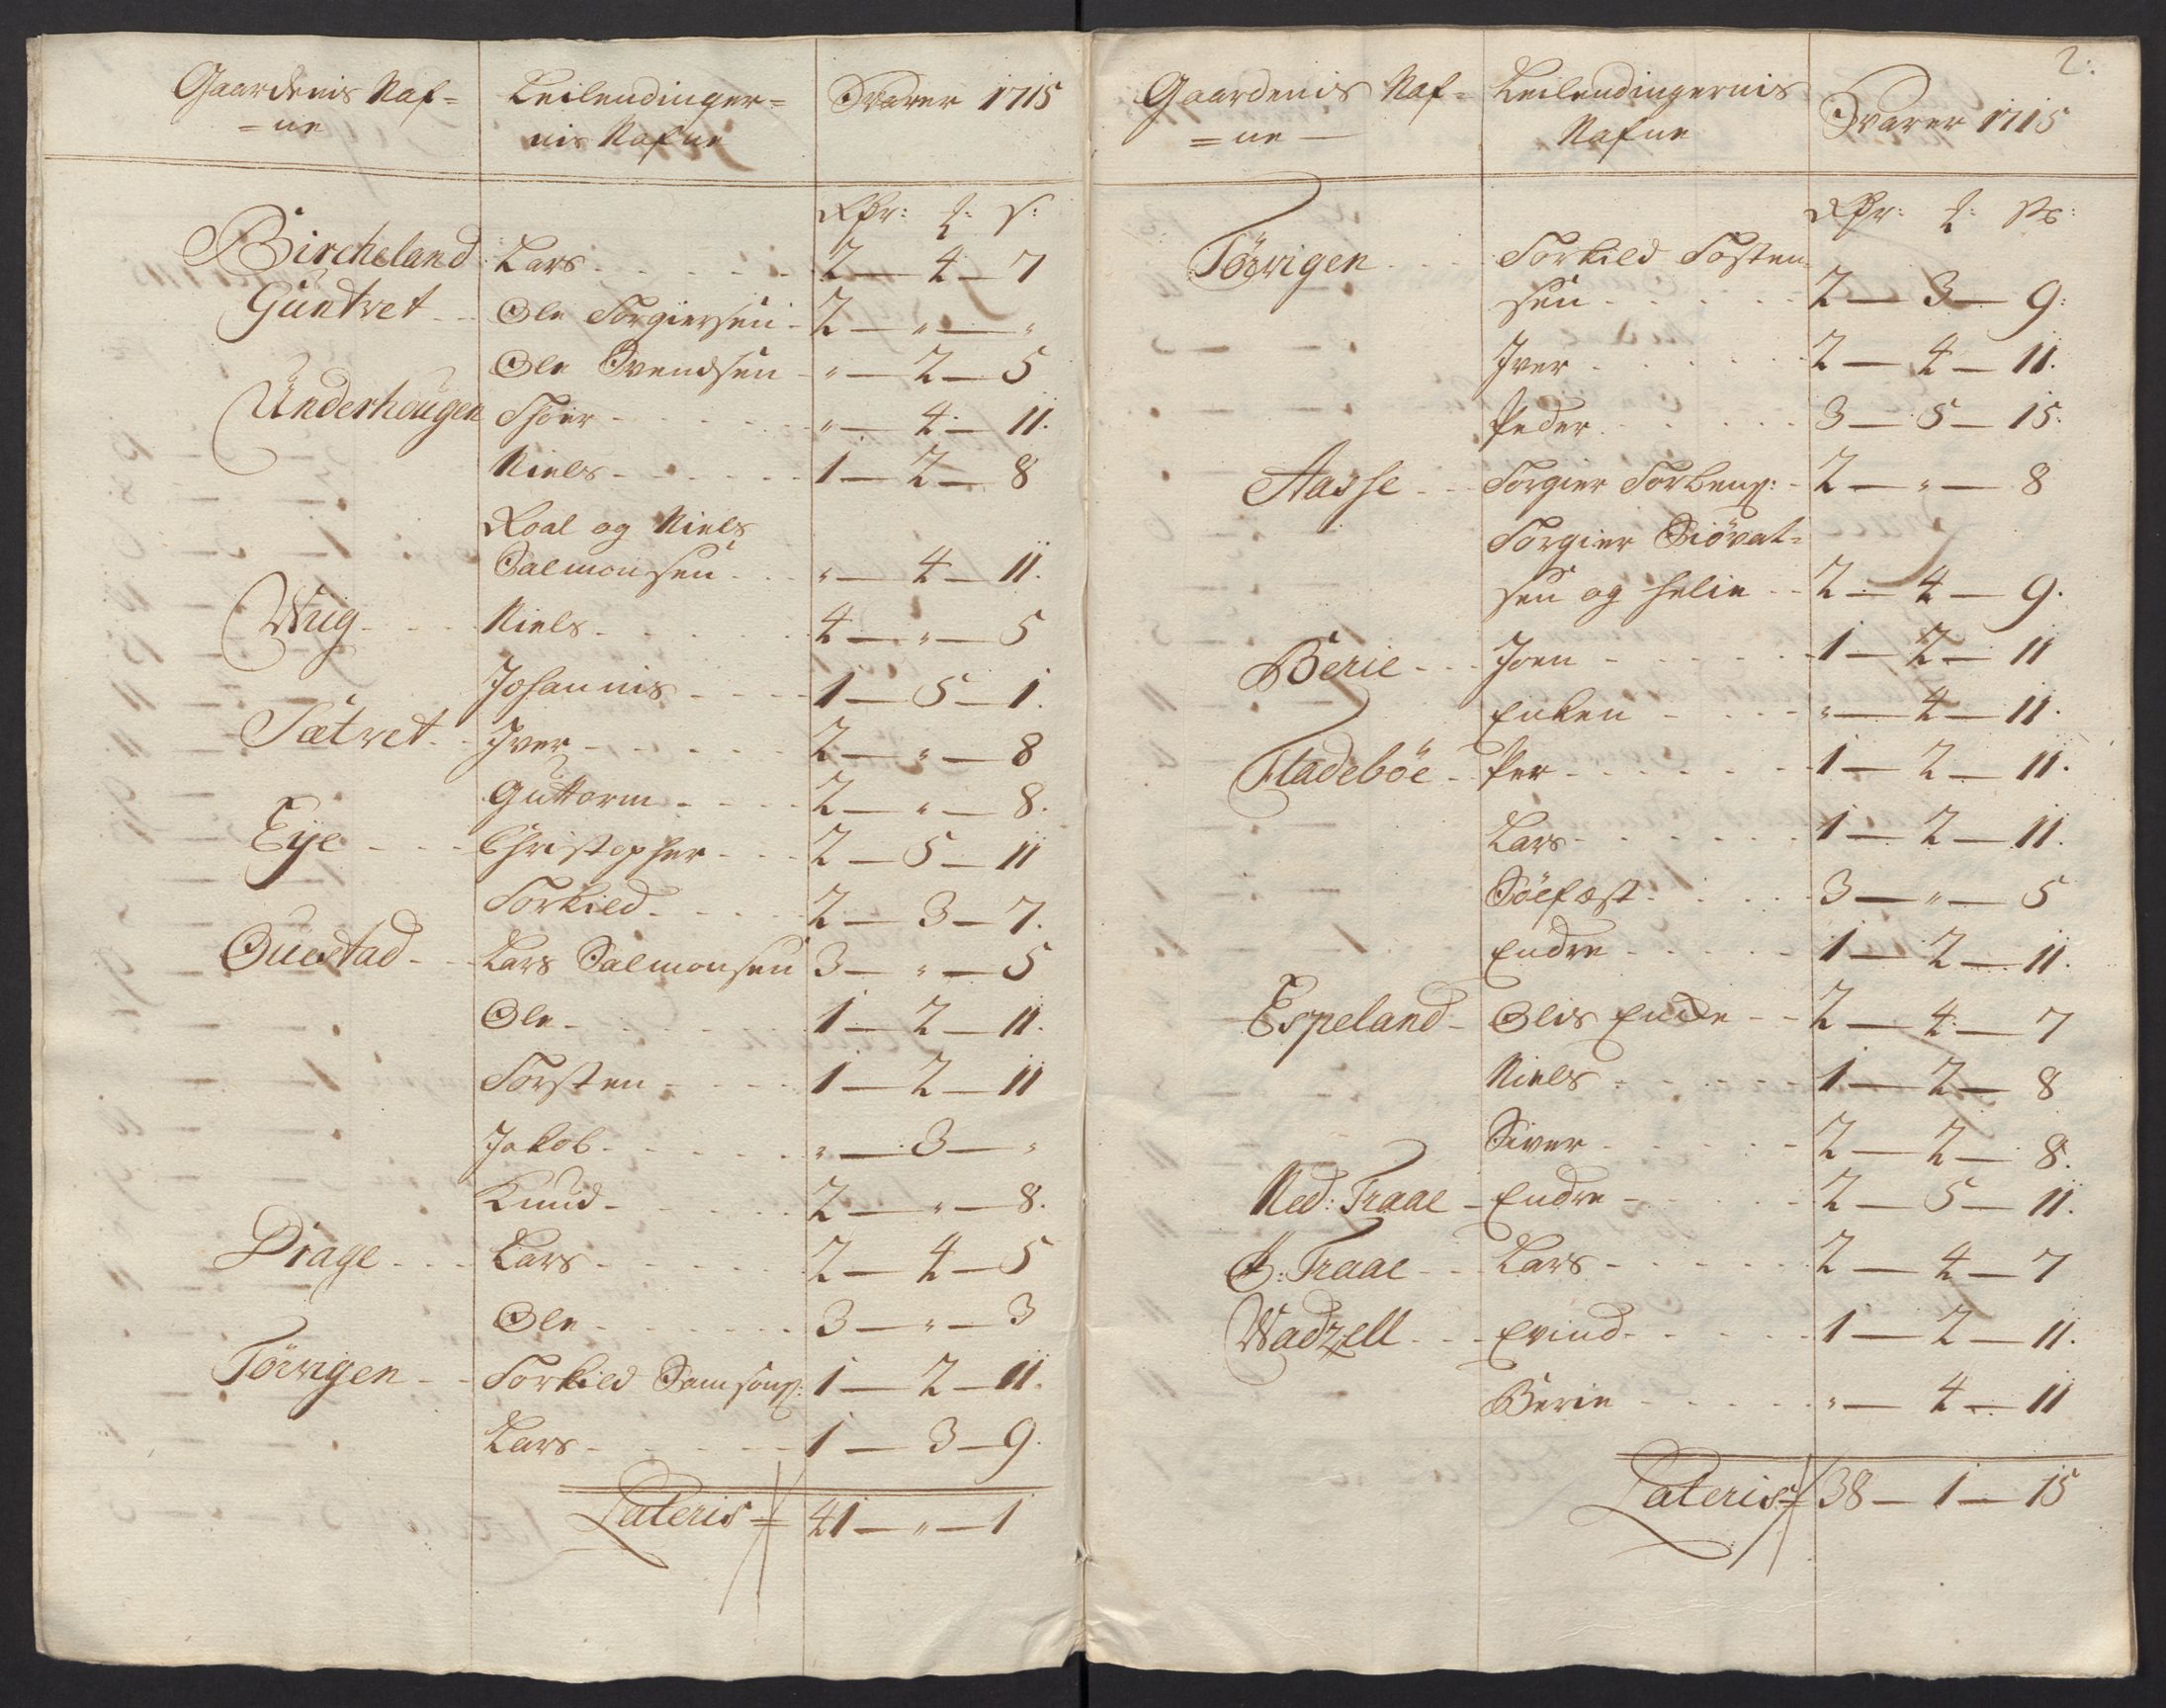 Gaardenis Naf=
=ne
Leilendinger=
nis Nafne
Svarer 1715
Rdr: ʒ: s:
Bircheland Lars 2 — 4 — 7
Guntvet Ole Torgiersen 2 — " — "
Ole Svendsen " — 2 — 5
Underhougen Thoer " — 4 — 11.
Niels 1 — 2 — 8
Roal og Niels
Salmonsen " — 4 — 11.
Wiig Niels 4 — " — 5
Johannis 1 — 5 — 1.
Sætvet Iver 2 — " — 8
Guttorm 2 — " — 8.
Eye Christopher 2 — 5 — 11
Torkild 2 — 3 — 7.
Questad Lars Salmonsen 3 — " — 5
Ole 1 — 2 — 11.
Torsten 1 — 2 — 11
Jakob " — 3 — "
Knud 2 — " — 8.
Drage Lars 2 — 4 — 5
Ole 3 — " — 3
Törvigen Torkild Samsons: 1 — 2 — 11.
Lars 1 — 3 — 9.
Lateris 41 — " — 1
2:
Gaardenis Naf=
=ne
Leilendingernis
Nafne
Svarer 1715
Rdr: ʒ: s:
Törvigen Torkild Tosten=
sen 2 — 3 — 9:
Iver 2 — 4 — 11.
Peder 3 — 5 — 15.
Aasse Torgier Torbens: 2 — " — 8
Torgier Siövat=
sen og Helie 2 — 4 — 9.
Berie Joen 1 — 2 — 11
Enken " — 4 — 11.
Fladeböe Per 1 — 2 — 11.
Lars 1 — 2 — 11.
Söefæst 3 — " — 5
Endre 1 — 2 — 11.
Espeland Olis Enke 2 — 4 — 7
Niels 1 — 2 — 8
Siver 2 — 2 — 8.
Ned: Traae Endre 2 — 5 — 11.
Traae Lars 2 — 4 — 7
Wadzell Evind 1 — 2 — 11.
Berie " — 4 — 11
Lateris 38 — 1 — 15